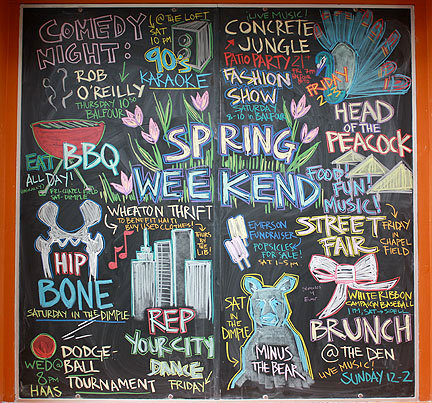 COMEDY
NIGHT:
ROB
O'REILLY
THURSDAY 10:30
BALFOUR
@ THE LOFT
SAT
10
PM
90's
KARAOKE
LIVE MUSIC!
CONCRETE
JUNGLE
PATIO PARTY 21+
FRI 7PM
FASHION
SHOW
SATURDAY
8-10 in BALFOUR
FRIDAY
2-5
HEAD
OF THE
PEACOCK
EAT BBQ
ALL DAY!
FRI-CHAPEL FIELD
SAT-DIMPLE
SPRING
WEEKEND
FOOD!
FUN!
MUSIC!
WHEATON THRIFT
TO BENEFIT HAITI
BUY USED CLOTHES!
THURS
BY THE
LIB!
EMERSON
FUNDRAISER
POPSICLES
FOR SALE!
SAT 1-5 PM
STREET
FAIR
FRIDAY
IN
CHAPEL
FIELD
HIP
BONE
SATURDAY IN THE DIMPLE
REP
YOUR CITY
DANCE
FRIDAY
SENIORS
4
EVER
SAT
IN THE
DIMPLE
MINUS
THE BEAR
WHITE RIBBON
CAMPAIGN BASEBALL
1 PM, SAT → SIDELL
BRUNCH
@ THE DEN
LIVE MUSIC!
SUNDAY 12-2
WED @
8 PM
HAAS
DODGE-
BALL
TOURNAMENT